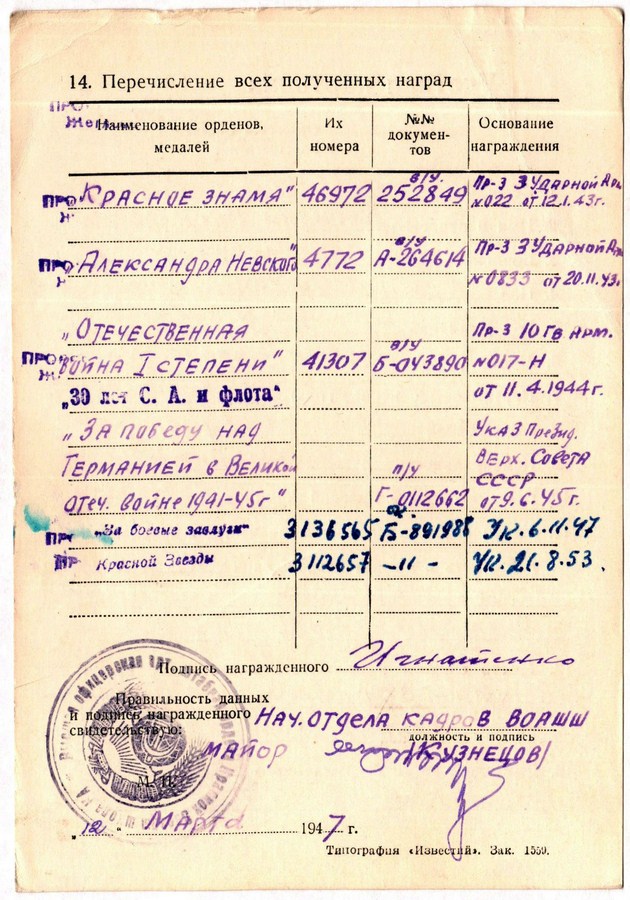 14. Перечисление всех полученных наград
Наименование орденов, медалей
Их номера
№№ докумен-тов
Основание награждения
"Красное знамя" 46972 в/у 252849 Пр-з 3 Ударной Арм
№022 от 12.1.43г.
Александра Невского" 4772 в/у А-264614 Пр-з 3 Ударной Арм
№0833 от 20.11.43г.
"Отечественная Пр-з 10 Гв Арм.
война I степени" 41307 в/у Б-043890 №017-Н
„30 лет С. А. и флота" от 11.4.1944г.
"За победу над Указ Презид.
Германией в Великой п/у Верх. Совета
СССР
Отеч. войне 1941-45г" Г-0112662 от 9.6.45г.
„За боевые заслуги" 3136565 Б-891988 Ук. 6.11.47
Красной Звезды 3112657 -11- Ук. 21.8.53.
Подпись награжденного Игнатенко
Правильность данных
и подпись награжденного Нач. отдела кадров ВОАШШ
свидетельствую: должность и подпись
майор /Кузнецов/
М. П.
„12" Марта 1947 г.
Типография «Известий». Зак. 1559.